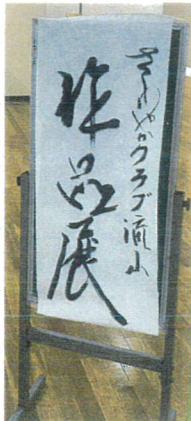 さわやかクラブ流山
作品展